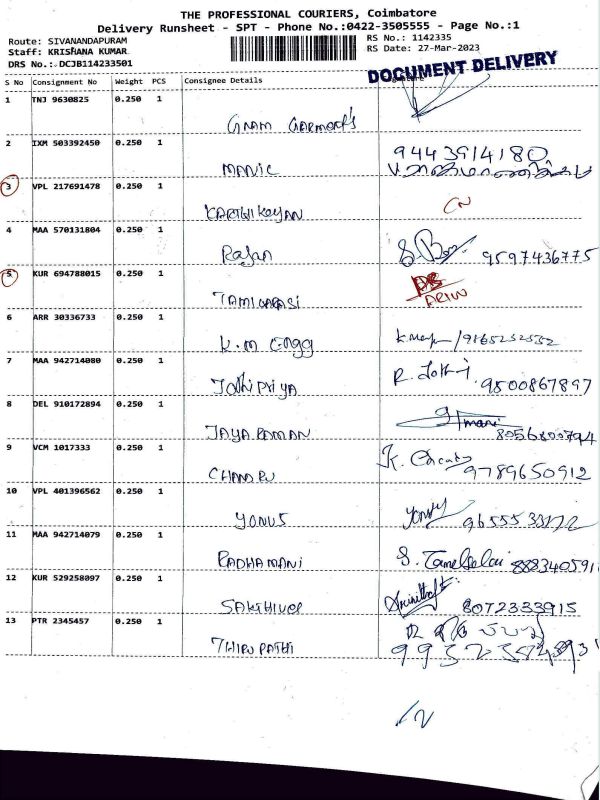 THE PROFESSIONAL COURIERS, Coimbatore
Delivery Runsheet - SPT - Phone No.:0422-3505555 - Page No.:1
Route: SIVANANDAPURAM RS No.: 1142335
Staff: KRISHANA KUMAR RS Date: 27-Mar-2023
DRS No.:.DCJB114233501
DOCUMENT DELIVERY
S No Consignment No Weight PCS Consignee Details
1 TNJ 9630825 0.250 1
GNAM GARMENT'S
2 IXM 503392450 0.250 1 9443914180
MANIC
3 VPL 217691478 0.250 1 CN
KARTHIKEYAN
4 MAA 570131804 0.250 1
Rajan 9597436775
5 KUR 694788015 0.250 1
TAMILARASI
6 ARR 30336733 0.250 1
K.M ENGG
7 MAA 942714080 0.250 1
Jothi Priya 9500867897
8 DEL 910172894 0.250 1
JAYARAMAN 8056800794
9 VCM 1017333 0.250 1
CHANDRU 9789650912
10 VPL 401396562 0.250 1
YONUS
11 MAA 942714079 0.250 1
RADHAMANI
12 KUR 529258097 0.250 1
SAKTHIVEL 8072333915
13 PTR 2345457 0.250 1
THIRUPATHI